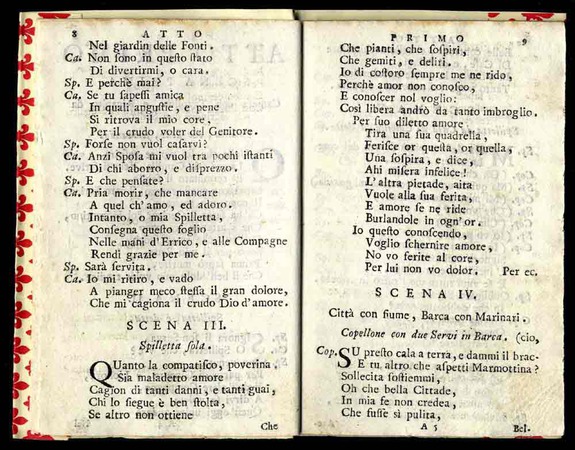 8 ATTO
Nel giardin delle Fonti.
Ca. Non sono in questo stato
Di divertirmi, o cara.
Sp. E perchè mai?
Ca. Se tu sapessi amica
In quali angustie, e pene
Si ritrova il mio core,
Per il crudo voler del Genitore.
Sp. Forse non vuol casarvi?
Ca. Anzi Sposa mi vuol tra pochi istanti
Di chi aborro, e disprezzo.
Sp. E che pensate?
Ca. Pria morir, che mancare
A quel ch'amo, ed adoro.
Intanto, o mia Spilletta,
Consegna questo foglio
Nelle mani d'Errico, e alle Compagne
Rendi grazie per me.
Sp. Sarà servita.
Ca. Io mi ritiro, e vado
A pianger meco stessa il gran dolore,
Che mi cagiona il crudo Dio d'amore.
SCENA III.
Spilletta sola.
QUanto la compatisco, poverina.
Sia maladetto amore
Cagion di tanti danni, e tanti guai,
Chi lo siegue è ben stolta,
Se altro non ottiene
Che
PRIMO 9
Che pianti, che sospiri,
Che gemiti, e deliri.
Io di costoro sempre me ne rido,
Perchè amor non conosco,
E conoscer nol voglio:
Così libera andrò da tanto imbroglio.
Per suo diletto amore
Tira una sua quadrella,
Ferisce or questa, or quella,
Una sospira, e dice,
Ahi misera infelice!
L'altra pietade, aita
Vuole alla sua ferita,
E amore se ne ride
Burlandole in ogn'or.
Io questo conoscendo,
Voglio schernire amore,
No vo ferite al core,
Per lui non vo dolor. Per ec.
SCENA IV.
Città con fiume, Barca con Marinari.
Copellone con due Servi in Barca. (cio,
Cop. SU presto cala a terra, e dammi il brac-
E tu altro che aspetti Marmottina?
Sollecita sostiemmi,
Oh che bella Cittade,
In mia fe non credea,
Che fusse sì pulita,
A 5 Bel-